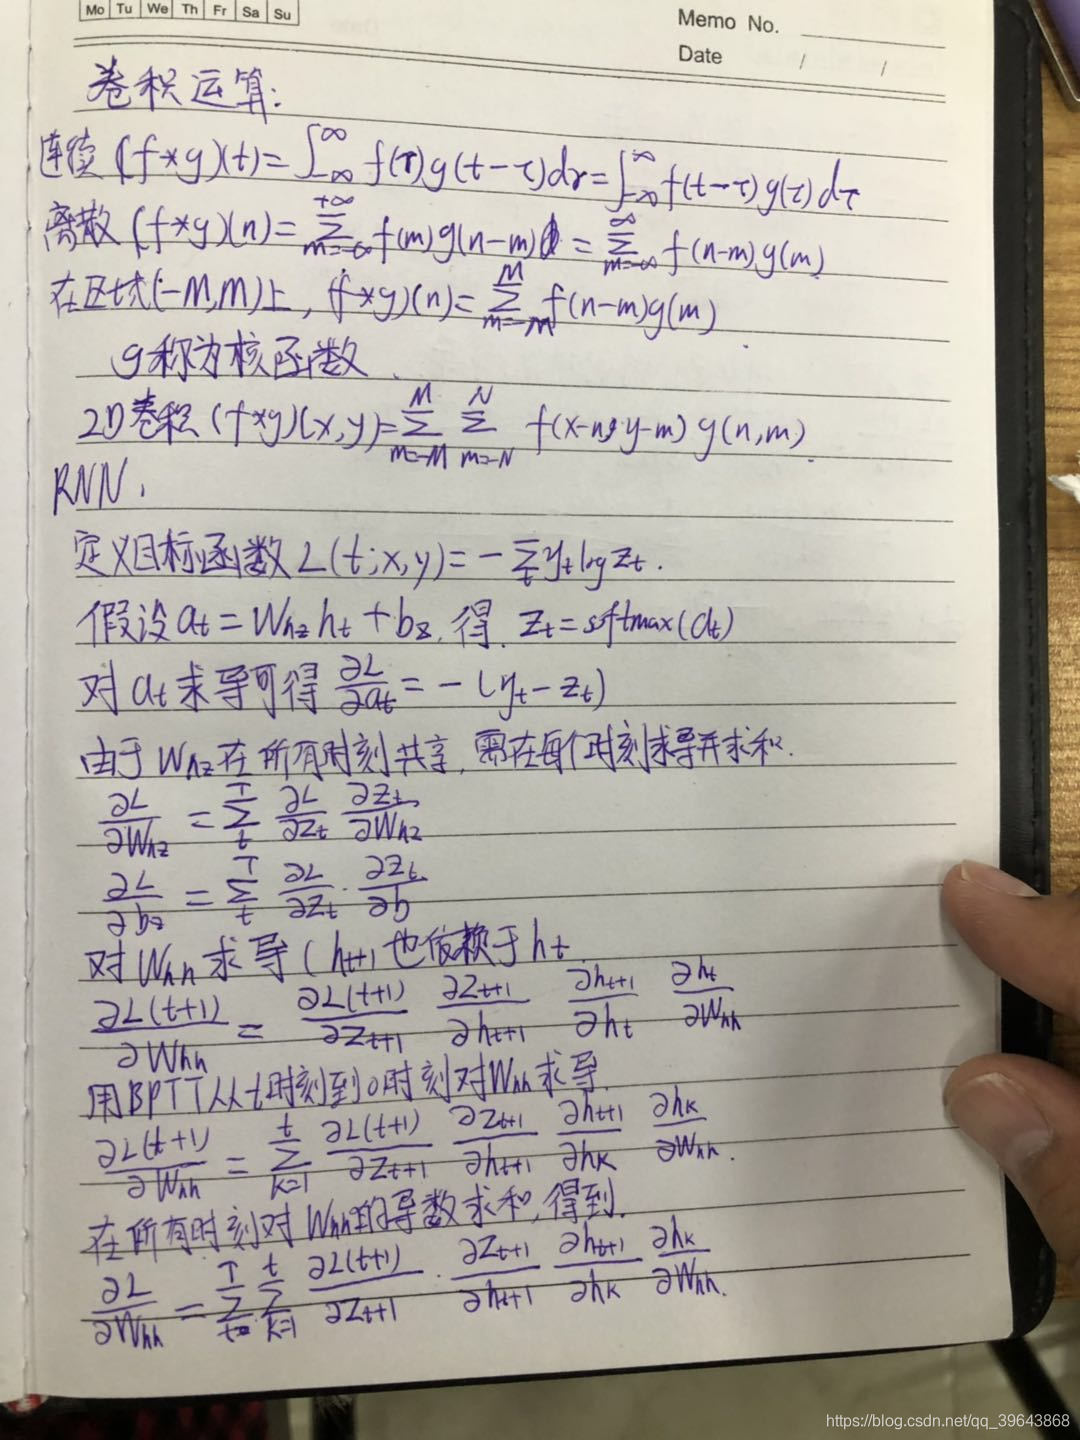 Mo Tu We Th Fr Sa Su
Memo No.
Date / /
卷积运算:
连续 (f*g)(t)=∫_{-∞}^{∞} f(τ)g(t-τ)dτ=∫_{-∞}^{∞} f(t-τ)g(τ)dτ
离散 (f*g)(n)=∑_{m=-∞}^{+∞} f(m)g(n-m) = ∑_{m=-∞}^{∞} f(n-m)g(m)
在区域(-M,M)上, (f*g)(n)=∑_{m=-M}^{M} f(n-m)g(m)
g称为核函数.
2D卷积 (f*g)(x,y)=∑_{m=-M}^{M} ∑_{m=-N}^{N} f(x-n,y-m) g(n,m).
RNN.
定义目标函数 L(t;x,y)=-∑_t y_t log z_t.
假设 a_t=W_{hz}h_t+b_z, 得. z_t=softmax(a_t)
对 a_t 求导可得 ∂L/∂a_t=-(y_t-z_t)
由于 W_{hz} 在所有时刻共享, 需在每个时刻求导并求和.
∂L/∂W_{hz} = ∑_t^T ∂L/∂z_t ∂z_t/∂W_{hz}
∂L/∂b_z = ∑_t^T ∂L/∂z_t · ∂z_t/∂b
对 W_{hh} 求导 (h_{t+1} 也依赖于 h_t
∂L(t+1)/∂W_{hh} = ∂L(t+1)/∂z_{t+1} ∂z_{t+1}/∂h_{t+1} ∂h_{t+1}/∂h_t ∂h_t/∂W_{hh}
用BPTT从t时刻到0时刻对W_{hh}求导.
∂L(t+1)/∂W_{hh} = ∑_{k=1}^{t} ∂L(t+1)/∂z_{t+1} ∂z_{t+1}/∂h_{t+1} ∂h_{t+1}/∂h_k ∂h_k/∂W_{hh}.
在所有时刻对 W_{hh} 的导数求和, 得到.
∂L/∂W_{hh} = ∑_t^T ∑_{k=1}^{t} ∂L(t+1)/∂z_{t+1} · ∂z_{t+1}/∂h_{t+1} ∂h_{t+1}/∂h_k ∂h_k/∂W_{hh}.
https://blog.csdn.net/qq_39643868